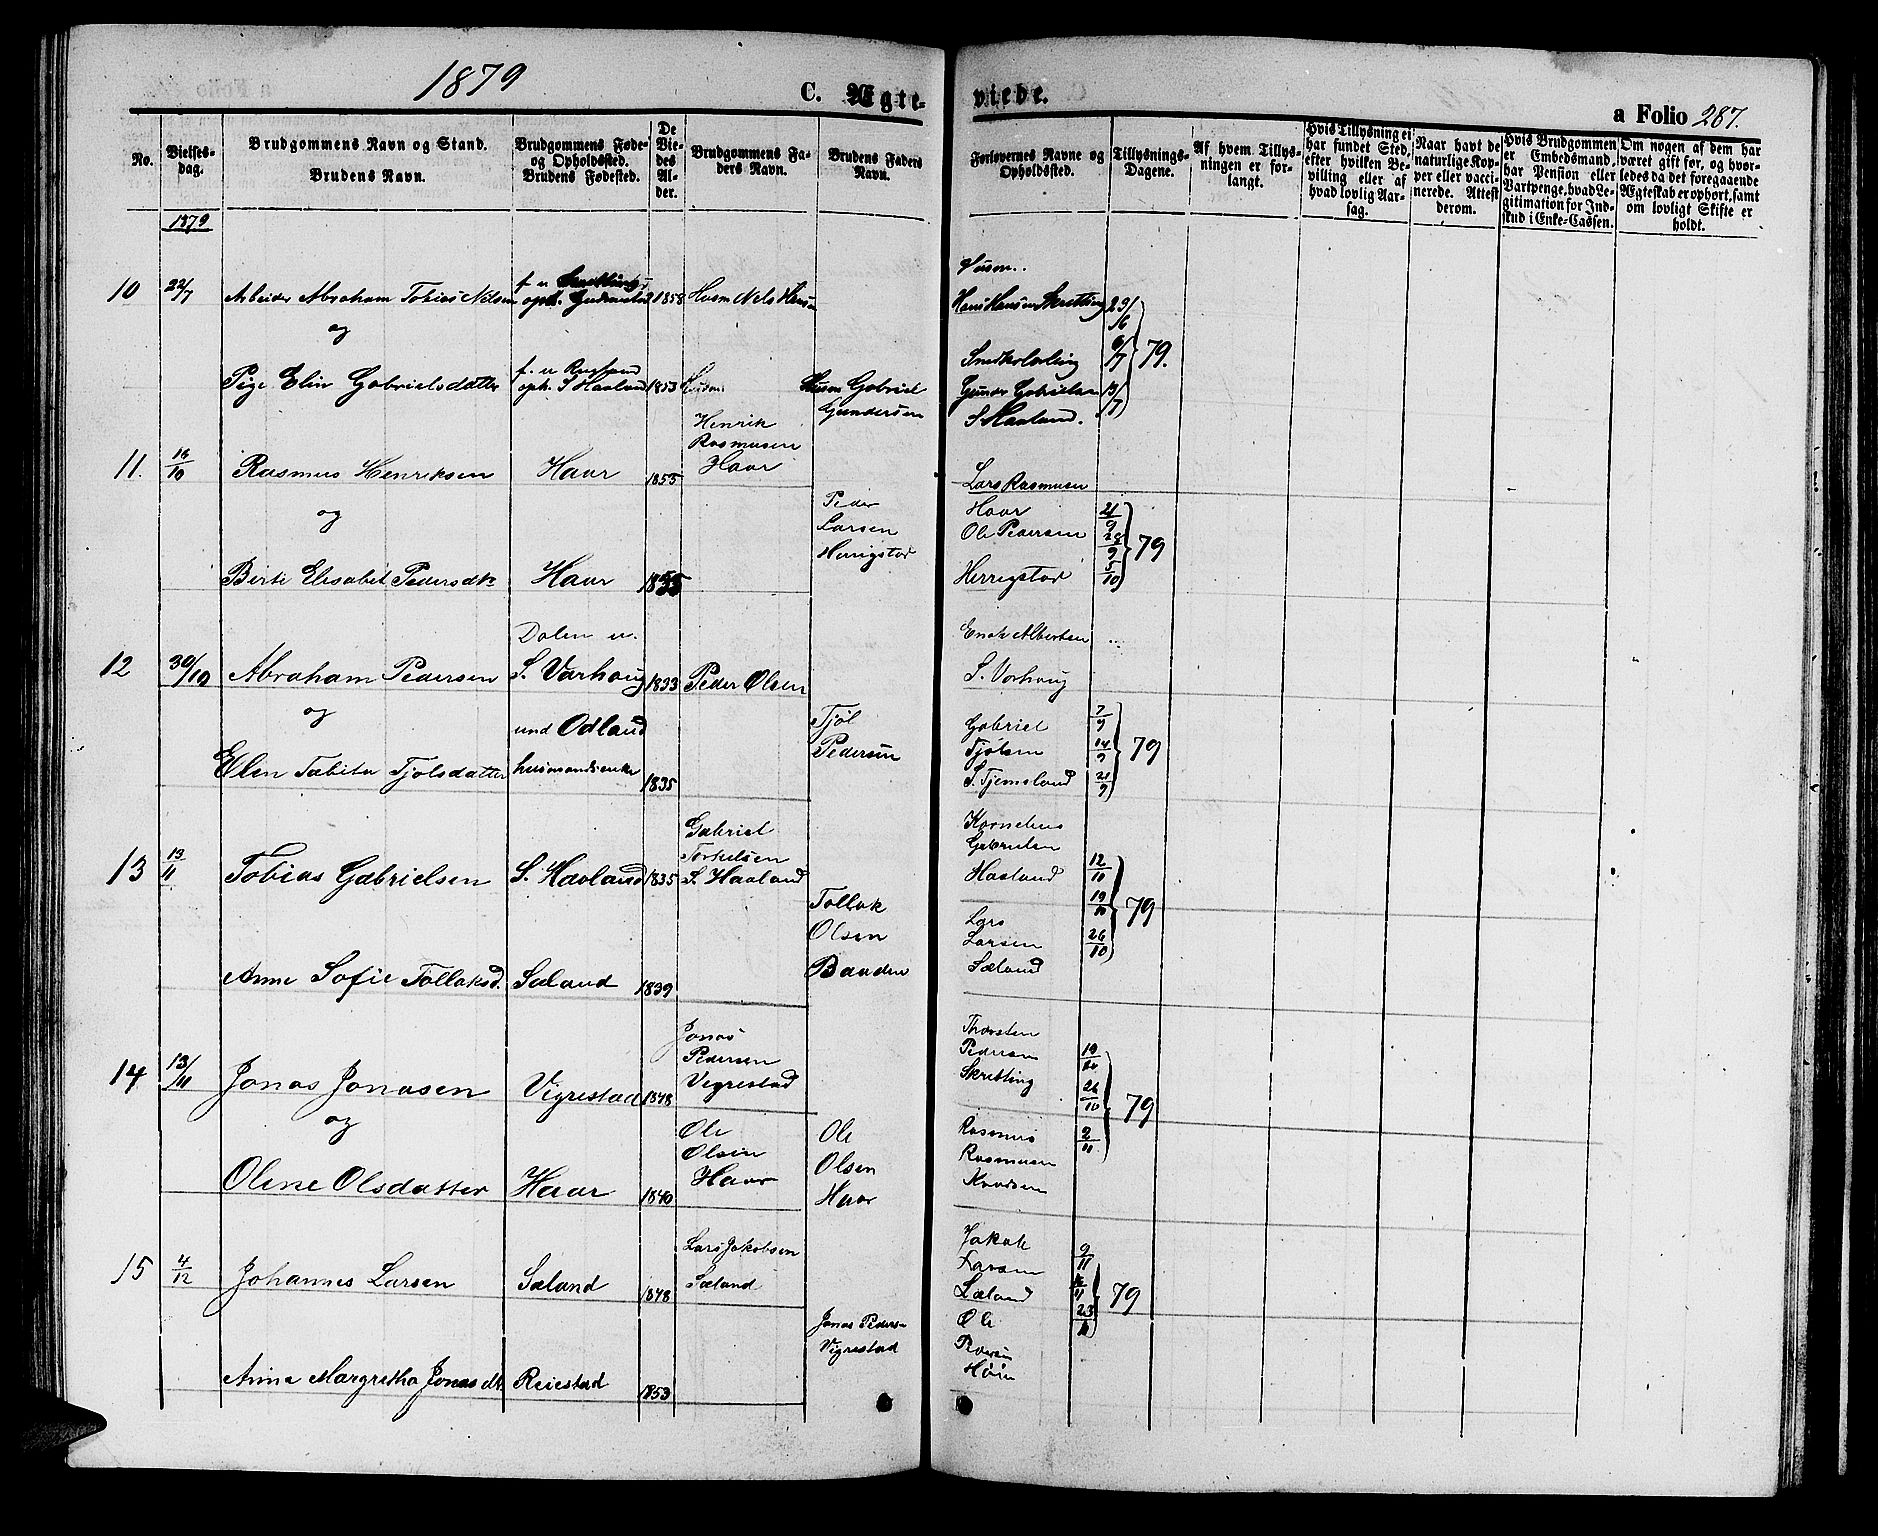 1879
C. Ægte-
viede.
a Folio 287.
No.
Vielses-
dag.
Brudgommens Navn og Stand.
Brudens Navn.
Brudgommens Føde-
og Opholdssted.
Brudens Fødested.
De
Vie-
des
Al-
der.
Brudgommens Fa-
ders Navn.
Brudens Faders
Navn.
Forlovernes Navne og
Opholdssted.
Tillysnings-
Dagene.
Af hvem Tillys-
ningen er for-
langt.
Hvis Tillysning ei
har fundet Sted,
efter hvilken Be-
villing eller af
hvad lovlig Aar-
sag.
Naar havt de
naturlige Kop-
per eller vacci-
nerede. Attest
derom.
Hvis Brudgommen
er Embedsmand,
har Pension eller
Vartpenge, hvad Le-
gitimation for Ind-
skud i Enke-Cassen.
Om nogen af dem har
været gift før, og hvor-
ledes da det foregaaende
Ægteskab er ophørt, samt
om lovligt Skifte er
holdt.
1879
10 22/7 Arbeider Abraham Tobias Nilsen
f. u
oph.
1858
Husm Nels
Husm..
Hans Hansen Skretting
29/6
og
Smedkolading
6/7
79.
Pige Elin Gabrielsdatter
f. u
oph. S Haaland
1853
Husm.
Husm Gabriel
Gundersen
Gunder Gabrielsen
S Haaland.
13/7
11. 16/10 Rasmus Henriksen
Haar
1855
Henrik
Rasmusen
Haar
Lars Rasmusen
Haar
21/9
og
Peder
Larsen
Herrigstad
Ole Pedersen
28/9
79
Birte Elisabet Pedersdt.
Haar
1855
Herrigstad
5/10
12 30/10 Abraham Pedersen
Dalen u.
S. Varhoug
1833
Peder Olsen
Enok Albertsen
S. Varhoug
og
und Odland
Tjøl
Pedersen
Gabriel
Tjølsen
S. Tjemsland
7/9
14/9
21/9
79
Elen Tabita Tjølsdatter
husmandsenke
1835
13 13/11 Tobias Gabrielsen
S. Haaland
1835
Gabriel
Torkelsen
S. Haaland
Kornelius
Gabrielsen
Haaland
12/10
Tollak
Olsen
Bauden
Lars
Larsen
Sæland
19/10
26/10
79
Anne Sofie Tollaksd.
Sæland
1839
14 13/11 Jonas Jonasen
Vigrestad
1848
Jonas
Pedersen
Vigrestad
Thorsten
Pedersen
Skretting
19/10
26/10
og
79
Olene Olsdatter
Haar
1840
Ole
Olsen
Haar
Ole
Olsen
Haar
Rasmus
Rasmusen
2/11
15 4/12 Johannes Larsen
Sæland
1848
Lars Jakobsen
Sæland
Jakob
Larsen
Sæland
9/11
79
Jonas Peders-
Vigrestad
Ole
23/11
Anna Margretha Jonasdt.
Reiestad
1853